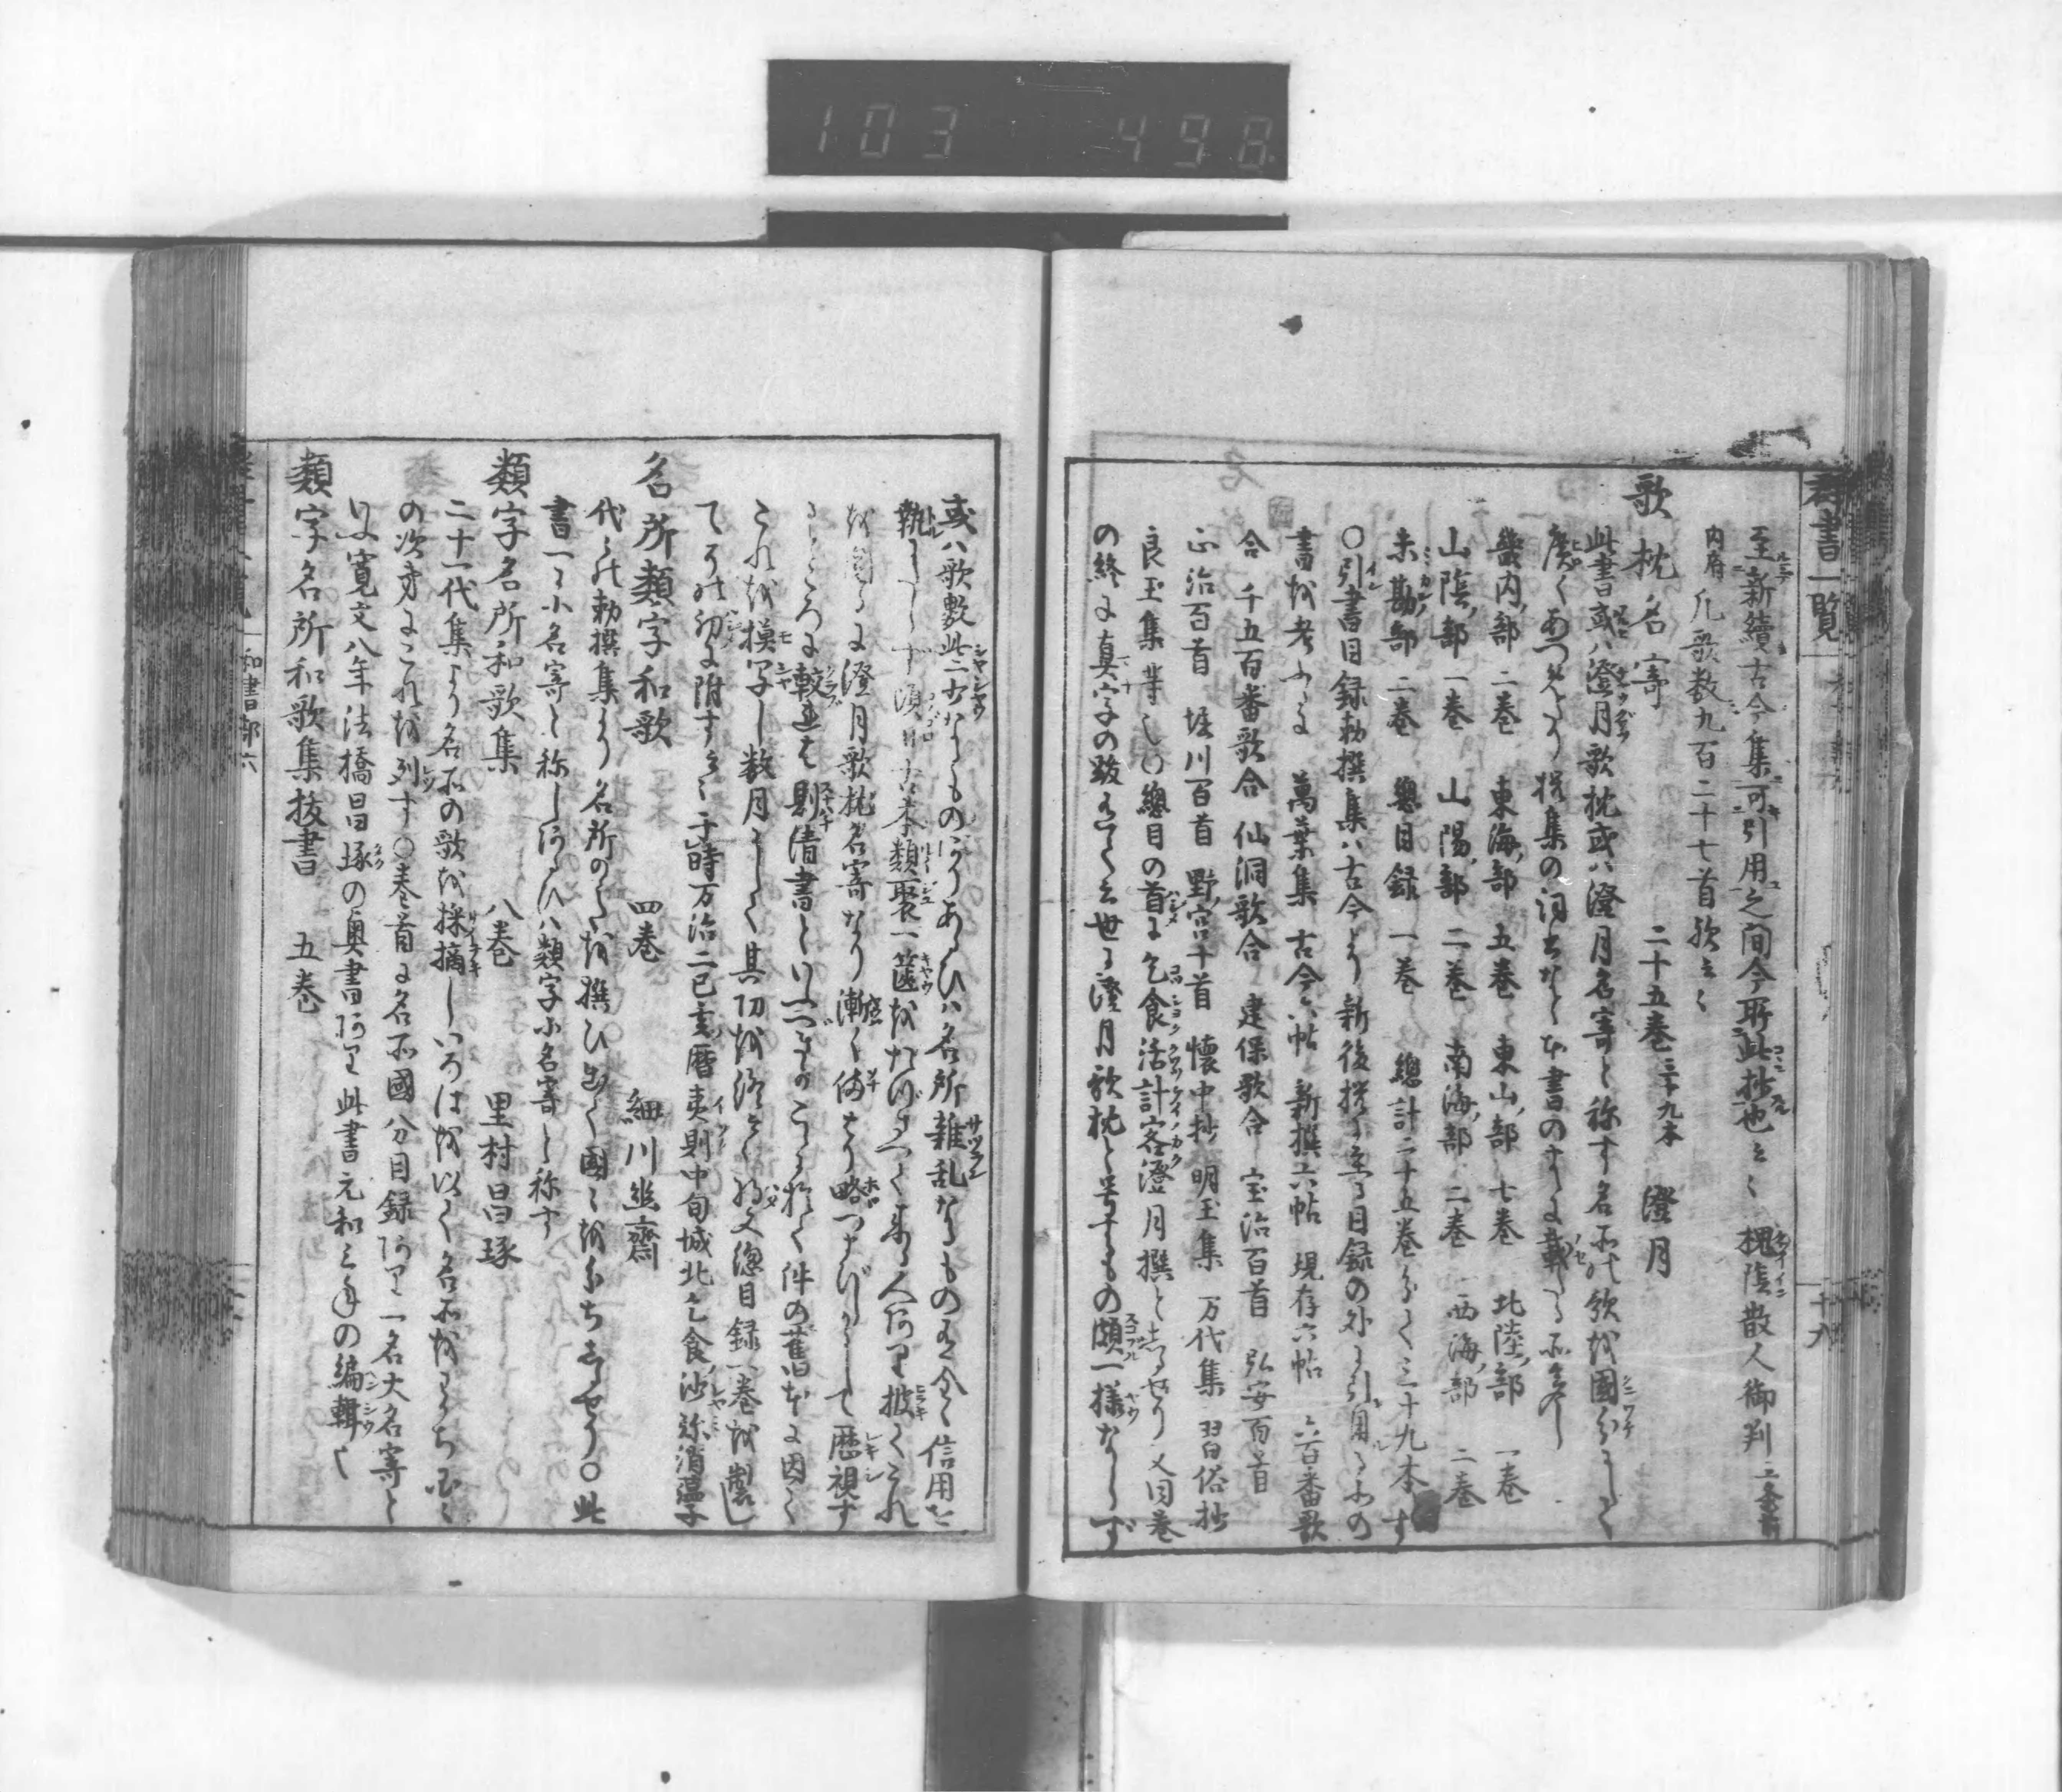 103 498
群書一覧
十八
至新續古今集可引用之間今所此抄也云〻 槐陰散人御判 二条前
内府 凡歌数九百二十七首歟云〻
歌枕名寄 二十五巻 三十九本 澄月
此書或ハ澄月歌枕或ハ澄月名寄と称す名所の歌を國分にして
廣くあつめたり撰集の詞書なども本書のまゝに載たる所多し
畿内ノ部 二巻 東海ノ部 五巻 東山ノ部 七巻 北陸ノ部 一巻
山陰ノ部 一巻 山陽ノ部 二巻 南海ノ部 二巻 西海ノ部 二巻
未勘ノ部 二巻 總目録 一巻 總計二十五巻分て三十九本す
○引書目録勅撰集ハ古今より新後撰に至る目録の外に引用る所の
書を考ふるに 萬葉集 古今六帖 新撰六帖 現存六帖 六百番歌
合 千五百番歌合 仙洞歌合 建保歌合 宝治百首 弘安百首
正治百首 堀川百首 野宮十首 懐中抄 明玉集 万代集 習俗抄
良玉集等也○總目の首に乞食活計客澄月撰と志るせり又同巻
の終に真字の跋有て云世に澄月歌枕と号するもの頗一様ならず
或ハ歌數此二少なるものありあるひハ名所雑乱なるもの有全く信用を
執しがたし 須 古本類聚一匧をたづさへて来る人あり披てこれ
を閲るに澄月歌枕名寄なり漸く備はり略つまびらかにして歴視す
るところに較五は則清書といつつべきのこころおく件の舊本に因て
これを摸写し数月にして其功を終ふ 又總目録一巻を製し
てその初に附す云〻于時万治二己亥暦夷則中旬城北乞食沙弥消 子
名所類字和歌 四巻 細川幽齋
代〻の勅撰集より名所のうたを撰ひ出て國〻をわちしるせり○此
書一に小名寄と称しあるひハ類字小名寄と称す
類字名所和歌集 八巻 里村昌琢
二十一代集より名所の歌を採摘しいろはを以て名所をわかち國〻
の次第にこれを列す○巻首に名所國分目録あり一名大名寄と
いふ寛文八年法橋昌琢の奥書あり此書元和三年の編輯也
類字名所和歌集抜書 五巻
和書部六